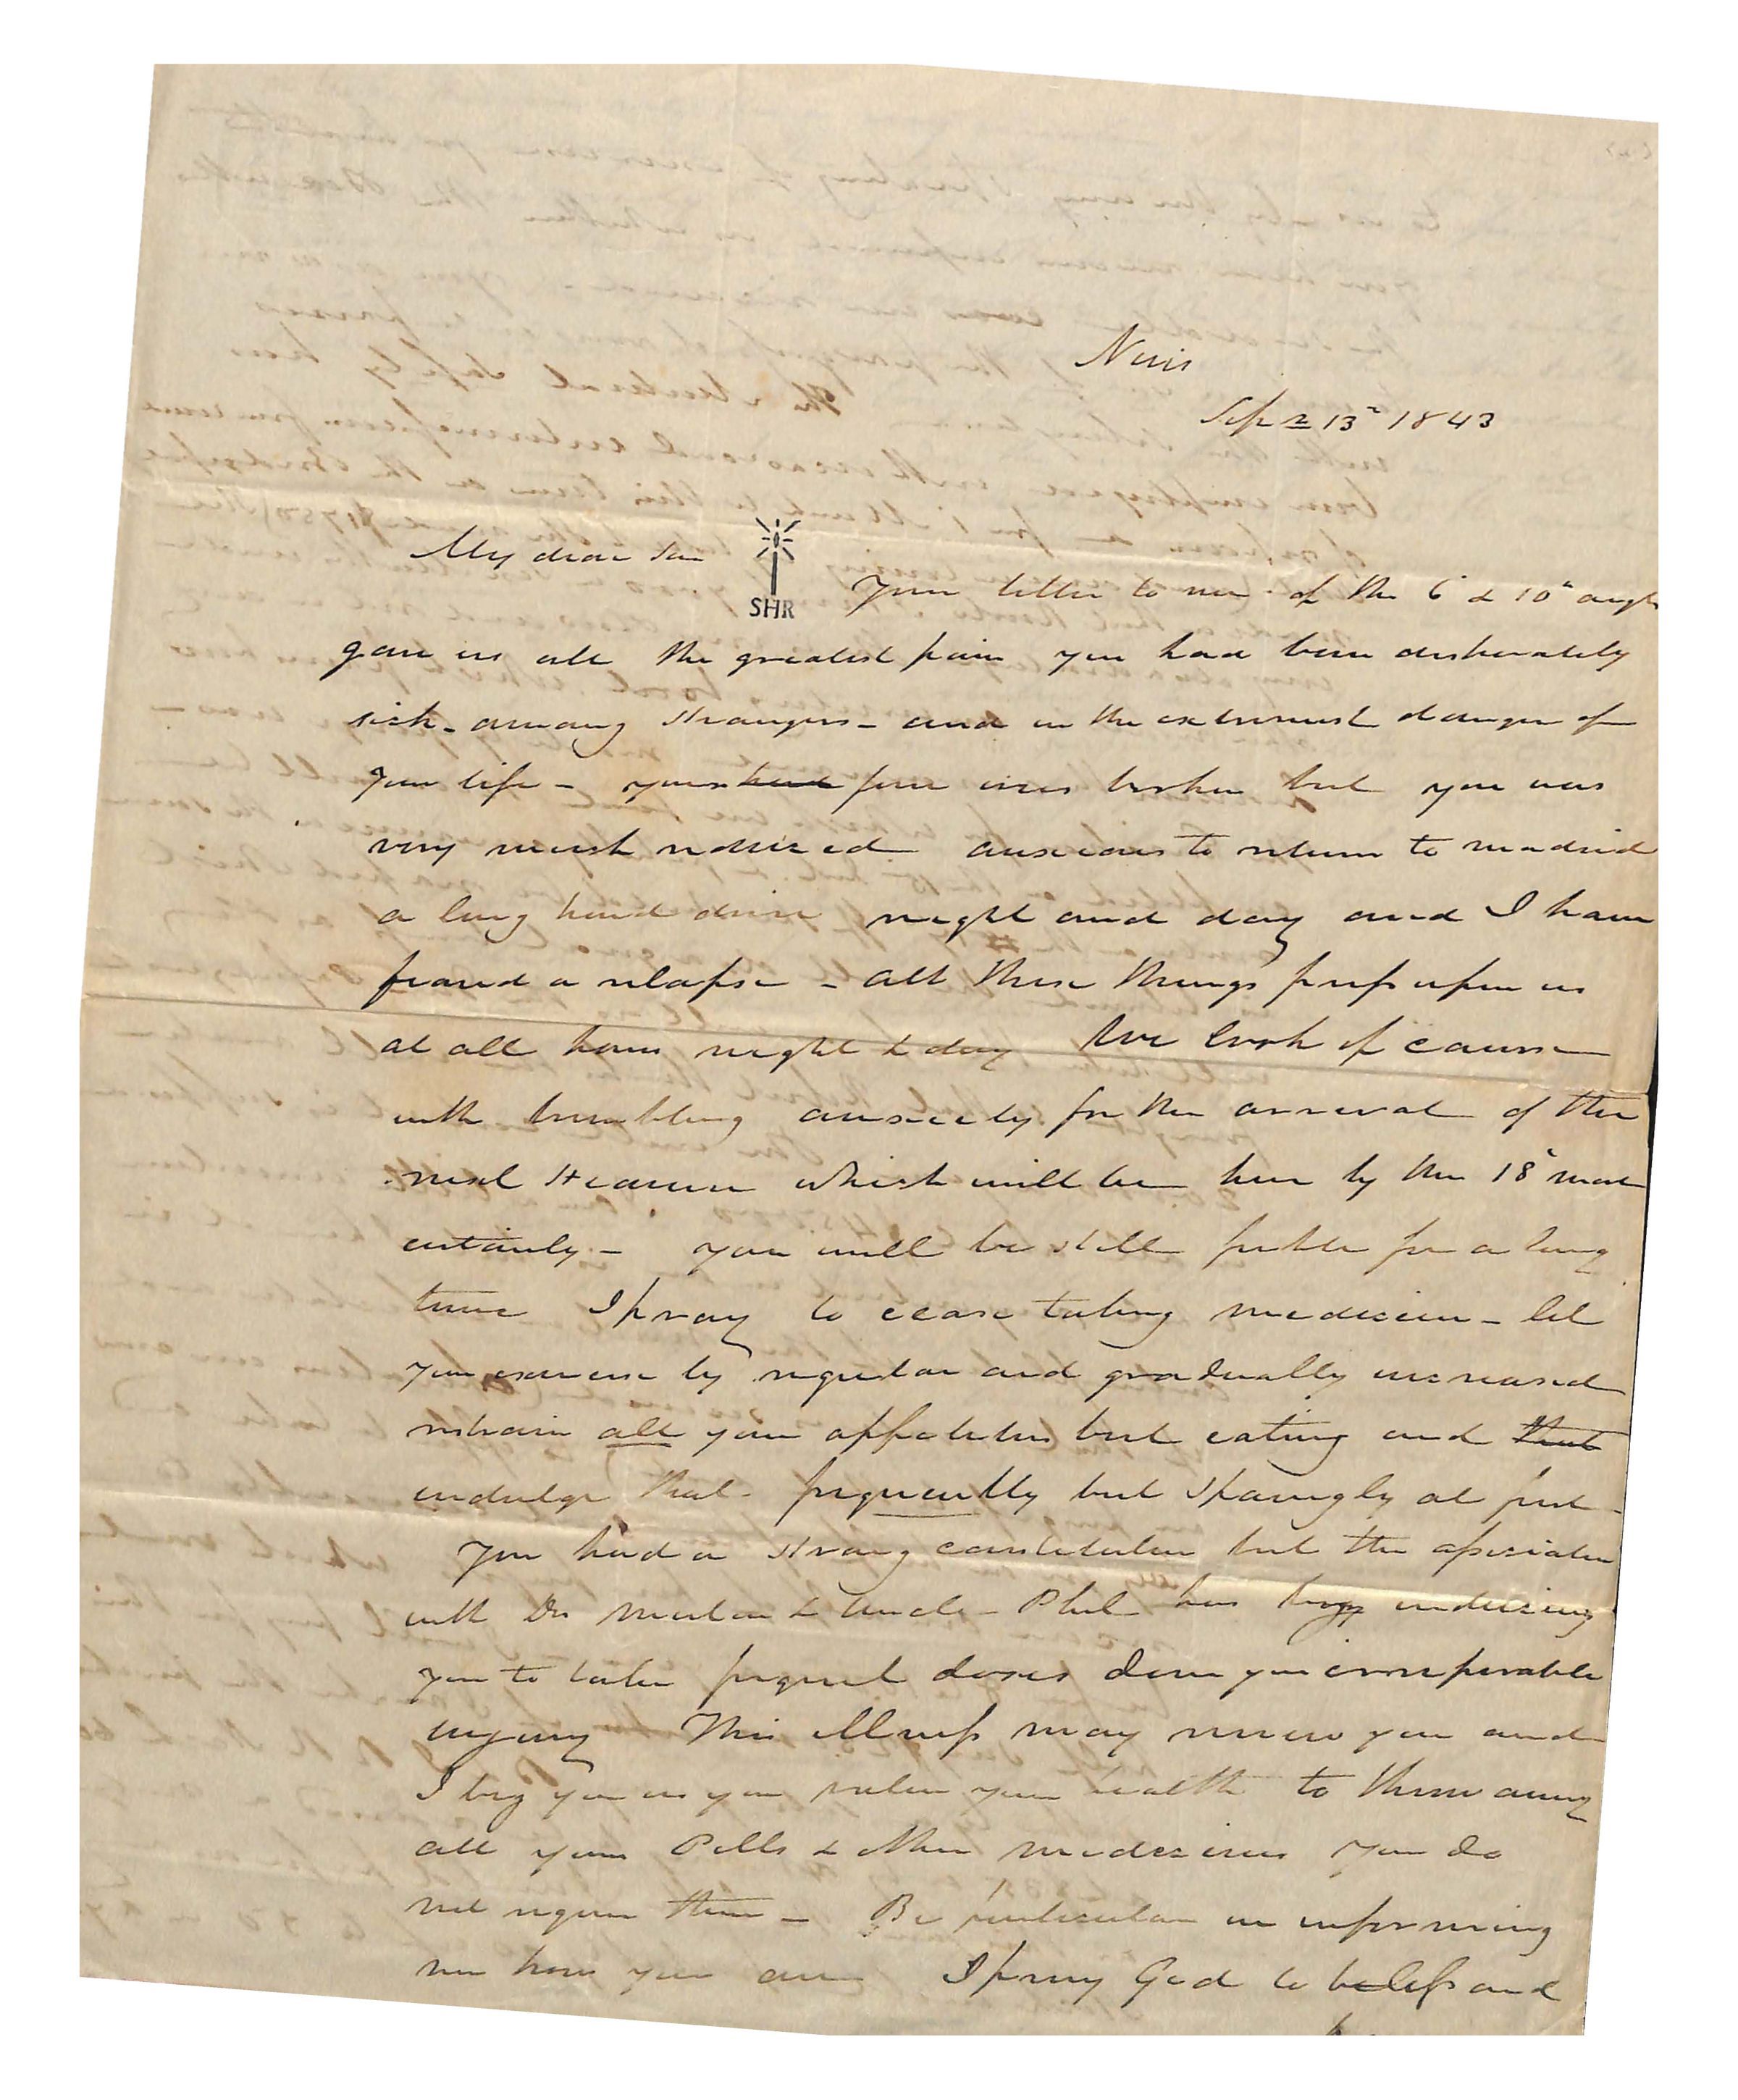 Nevis
Sept 13th 1843
My dear Son
SHR
Your letter to me of the 6 & 10th augt
gave us all the greatest pain you had been desperately
sick - among strangers - and in the extremest danger of
your life - your had fever was broken but you was
very much reduced anxious to return to madrid
a long hard drive night and day and I have
feared a relapse - all these things press upon us
at all hours night & day We look of course
with trembling anxiety for the arrival of the
next steamer which will be here by the 18th most
certainly - you will be still feeble for a long
time I pray to cease taking medicine - let
your exercise by regular and gradually increased
restrain all your appetites but eating and that
indulge that - frequently but sparingly at first -
You had a strong constitution but the association
with Dr & Uncle Phil has by inducing
you to take frequent doses done you irreparable
injury This illness may renew you and
I beg you as you value your health to throw away
all your Pills & other medicines you do
not require them - Be particular in informing
me how you are I pray God to bless and